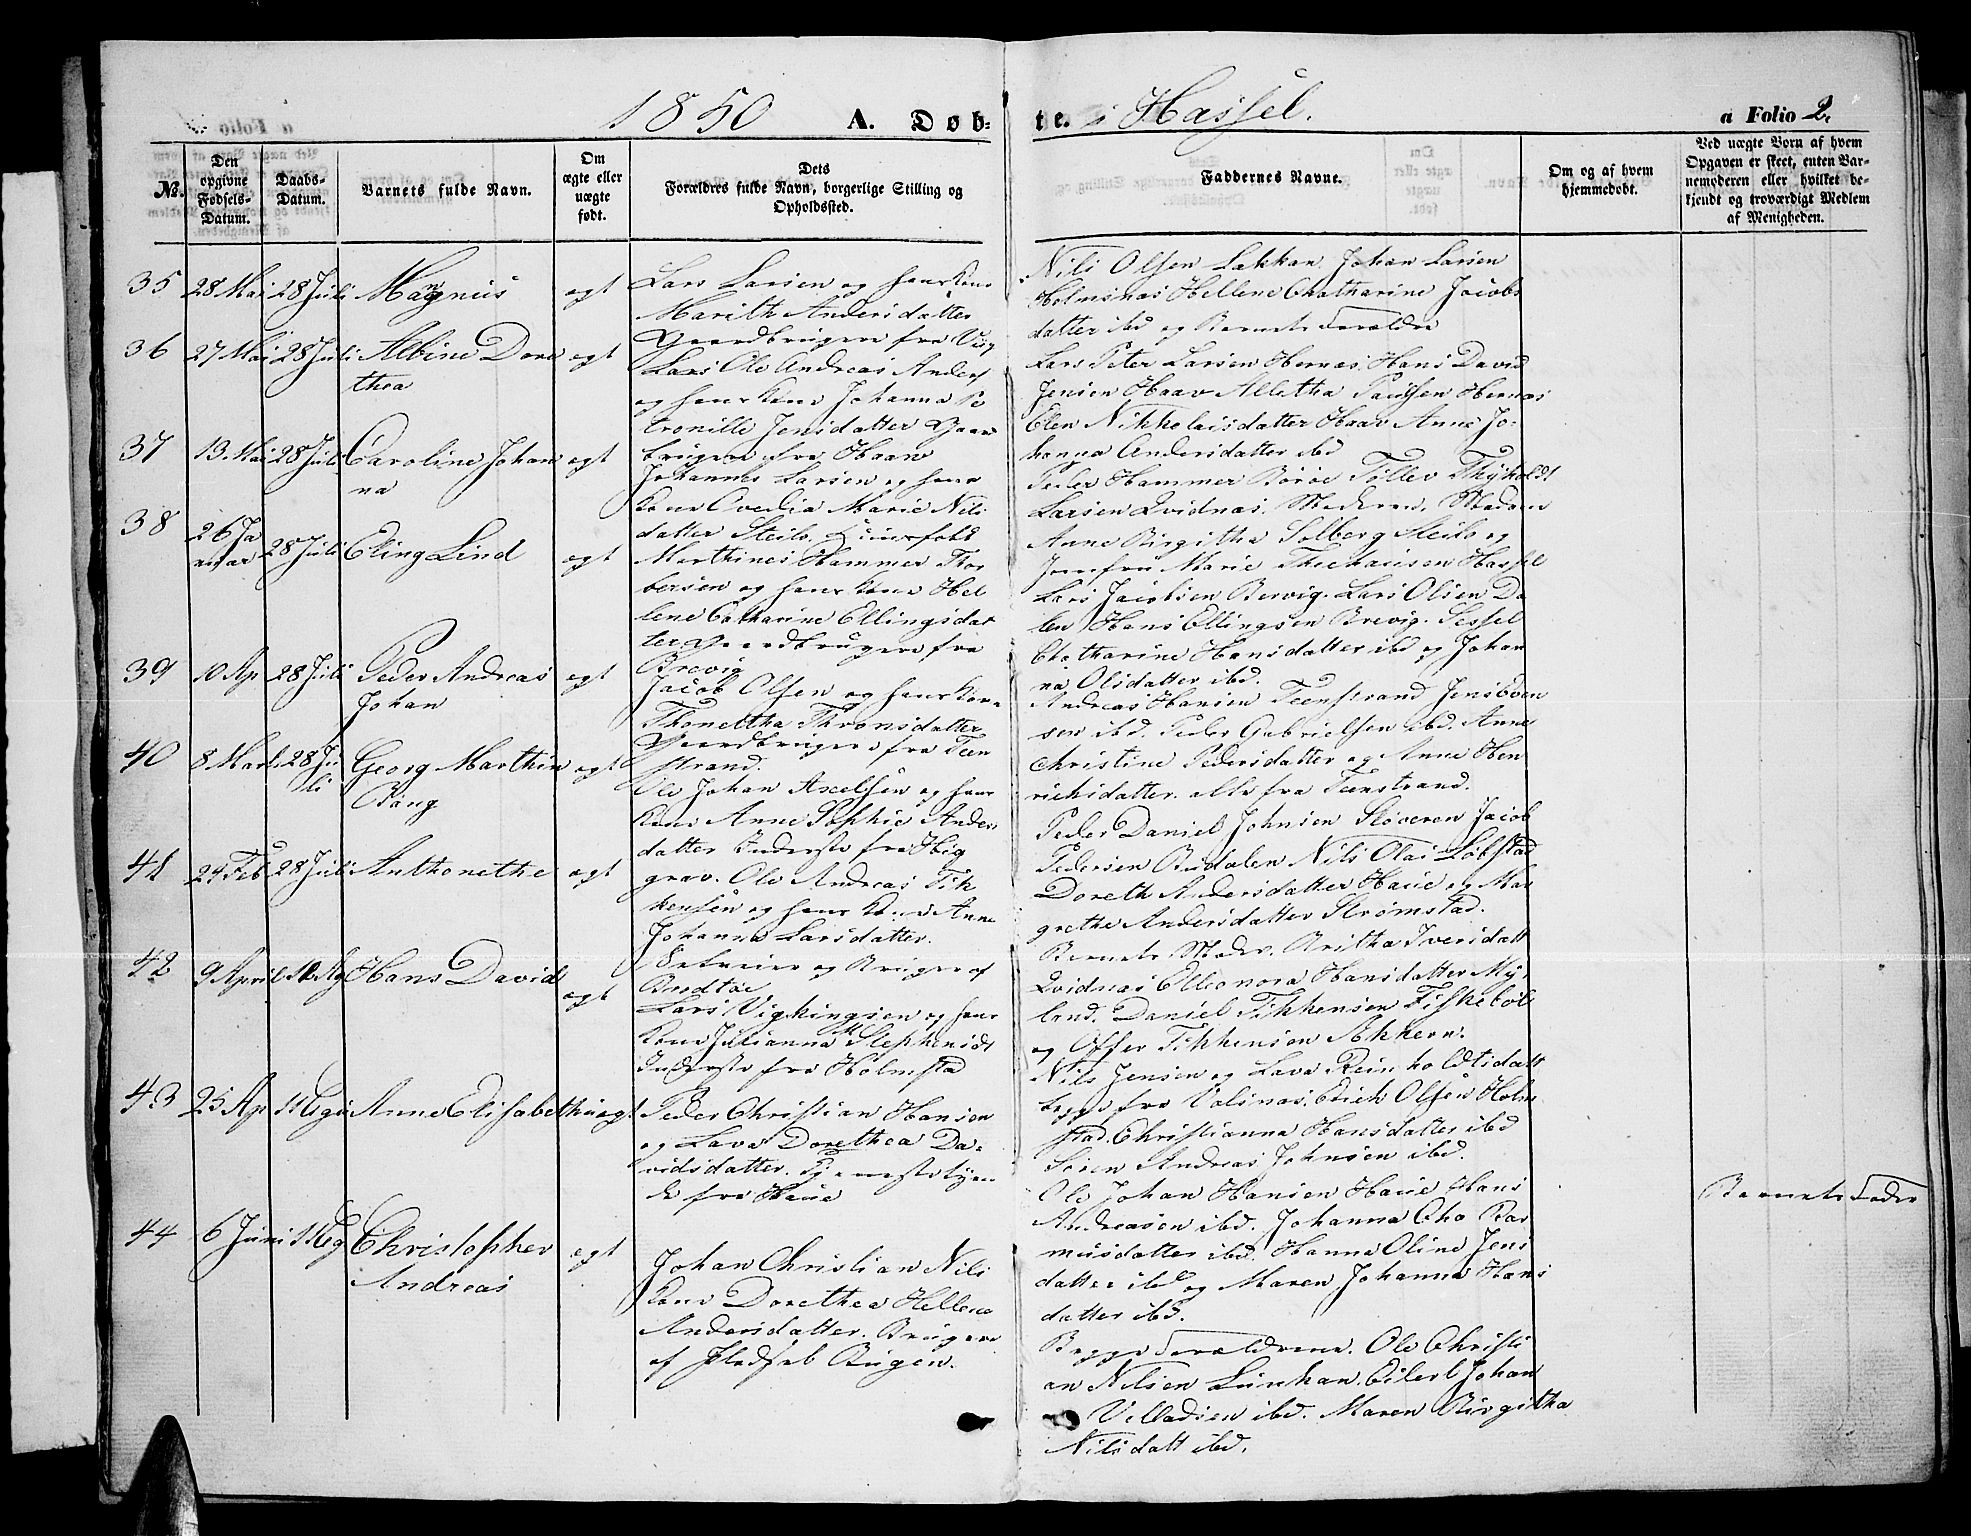 1850 A. Døb- te. i Hassel. a Folio 2.
No.
Den opgivne Fødsels-Datum.
Daabs-Datum.
Barnets fulde Navn.
Om ægte eller uægte født.
Dets Forældres fulde Navn, borgerlige Stilling og Opholdssted.
Faddernes Navne.
Om og af hvem hjemmedøbt.
Ved uægte Børn af hvem Opgaven er skeet, enten Barnemoderen eller hvilket bekjendt og troværdigt Medlem af Menigheden.
35 28 Mai 28 Juli Magnus egt
Lars Larsen og hans Kone
Marith Andersdatter
Gaardbrugere fra
Nils Olsen Lakkan Johan Larsen
Holmsnæs Hellene Chatharine Jacobs
datter ibd og Barnets Forældre
36 27 Mai 28 Juli Albine Doro
thea egt
Lars Ole Andreas Anders
og hans Kone Johanna Pe
tronille Jensdatter Gaard
brugere fra Haaw
Lars Peter Larsen Hernæs. Hans David
Jensen Haav Alletha Paulsen Hernæs
Elen Nikkolaisdatter Haav Anne Jo-
hanna Andersdatter ibd
37 13. Mai 28 Juli Caroline Johan
na egt
Johannes Larsen og hans
Kone Ovedia Marie Nils
datter Steilo,
Peder Hammer Børøe Tøller Thyholdt
Larsen Qvidnæs. Moderen, Madam
Anne Birgitha Solberg Steilo og
Jomfru Marie Hassel
38 26 Ja
nuar 28 Juli Eling Lind egt
Marthines Hammer Thor
bersen og hans Kone Hel
lene Catharine Ellingsdat
ter Gaardbrugere fra
Brevig
Lars Jacobsen Brevig. Lars Olsen Da
len Hans Ellingsen Brevig. Sessel
Chatharine Hansdatter ibd og Johan
na Olsdatter ibd.
39 10 Ap 28 Juli Peder Andreas
Johan egt
Jacob Olsen og hans Kone
Thonetha Thronsdatter
Gaardbrugere fra Teen
strand.
Andreas Hansen Teenstrand Jens Boen
sen ibd. Peder Gabrielsen ibd. Anne
Christine Pedersdatter og Anne Hen
richsdatter. alle fra Teenstrand.
40 8 Marts 28 Ju
li Georg Marthin
Bang egt
Ole Johan Axelsen og hans
Kone Anne Sophie Anders
datter Inderste fra Hig
grav.
Peder Daniel Johnsen Sløveren Jacob
Pedersen Budalen Nils Olai Løbstad
Doreth Andersdatter Haue og Mar
grethe Andersdatter Strømstad.
41 24 Feb 28 Juli Anthonethe egt
Ole Andreas Tik
kensen og hans Kone Anne
Johanna Larsdatter.
Selveier og Bruger af
Andtøe
Barnets Moder. Britha Iversdatt
Qvidnæs Elleonora Hansdatter My-
land. Daniel Tikkensen Fiskebøl
og Offer Tikkensen
42 9 April Hans David egt
Lars Vigkingsen og hans
Kone Julianna Stephensdt
Inderste fra Holmstad
Nils Jensen og Lava Reinholdtsdatt
begge fra Valsnæs, Erich Olsen Holm
stad. Christianna Hansdatter ibd
Sören Andreas Johnsen ibd.
43 25 Ap Anne Elisabeth egt
Peder Christian Hansen
og Lava Dorethea Da-
vidsdatter. Tjenesteligen
de fra Haue
Ole Johan Hansen Haue Hans
Andreasen ibd. Johanna Cha Ras
musdatter ibd. Hanna Oline Jens
datter ibd og Maren Johanna Hans
datter ibd.
Barnets Fader
44 6 Juni Christopher
Andreas egt
Johan Christian Nils
Kone Dorethea Hellene
Andersdatter. Brugere
af Fladsæt Bugen.
Begge Forældrene. Ole Christi
an Nilsen Eilert Johan
Velladsen ibd. Maren Birgitha
Nilsdatt ibd.